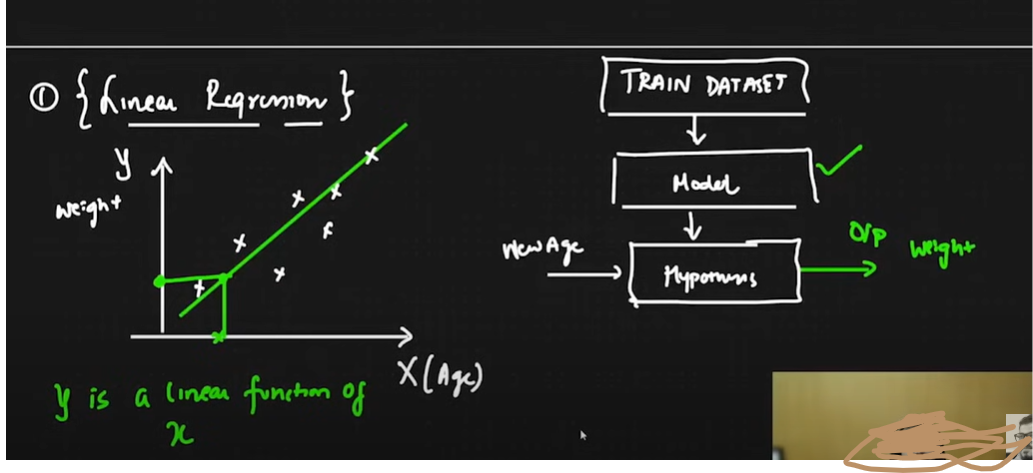 ① {Linear Regression}
Y
Weight
X (Age)
y is a linear function of
x
TRAIN DATASET
Model
New Age
Hypothesis
O/P Weight